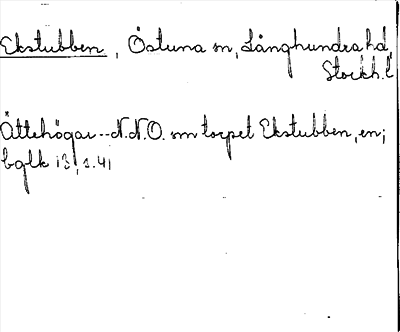 Ekstubben, Östuna sn, Långhundra hd,
Stockh. l
Ättehögar -- N.N.O. om torpet Ekstubben, en;
bglk 13, s. 41